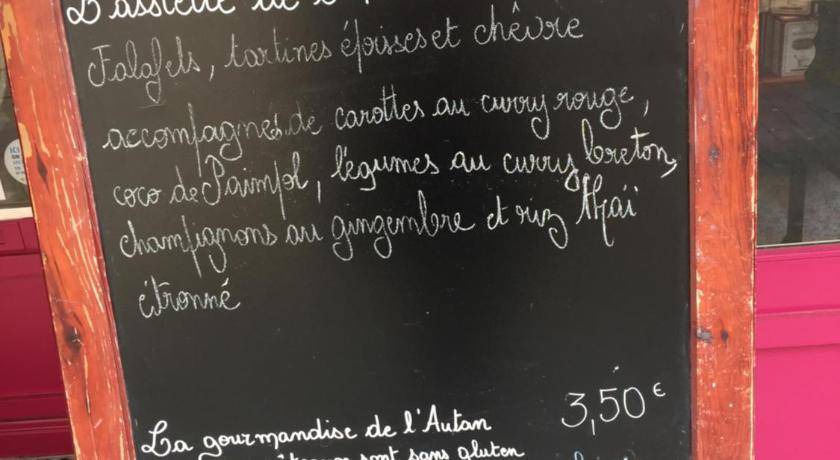 L'assiette de
Falafels, tartines époisses et chèvre
accompagnés de carottes au curry rouge,
coco de Paimpol, légumes au curry breton,
champignons au gingembre et riz Thaï
citronné
La gourmandise de l'Autan 3,50 €
sont sans gluten